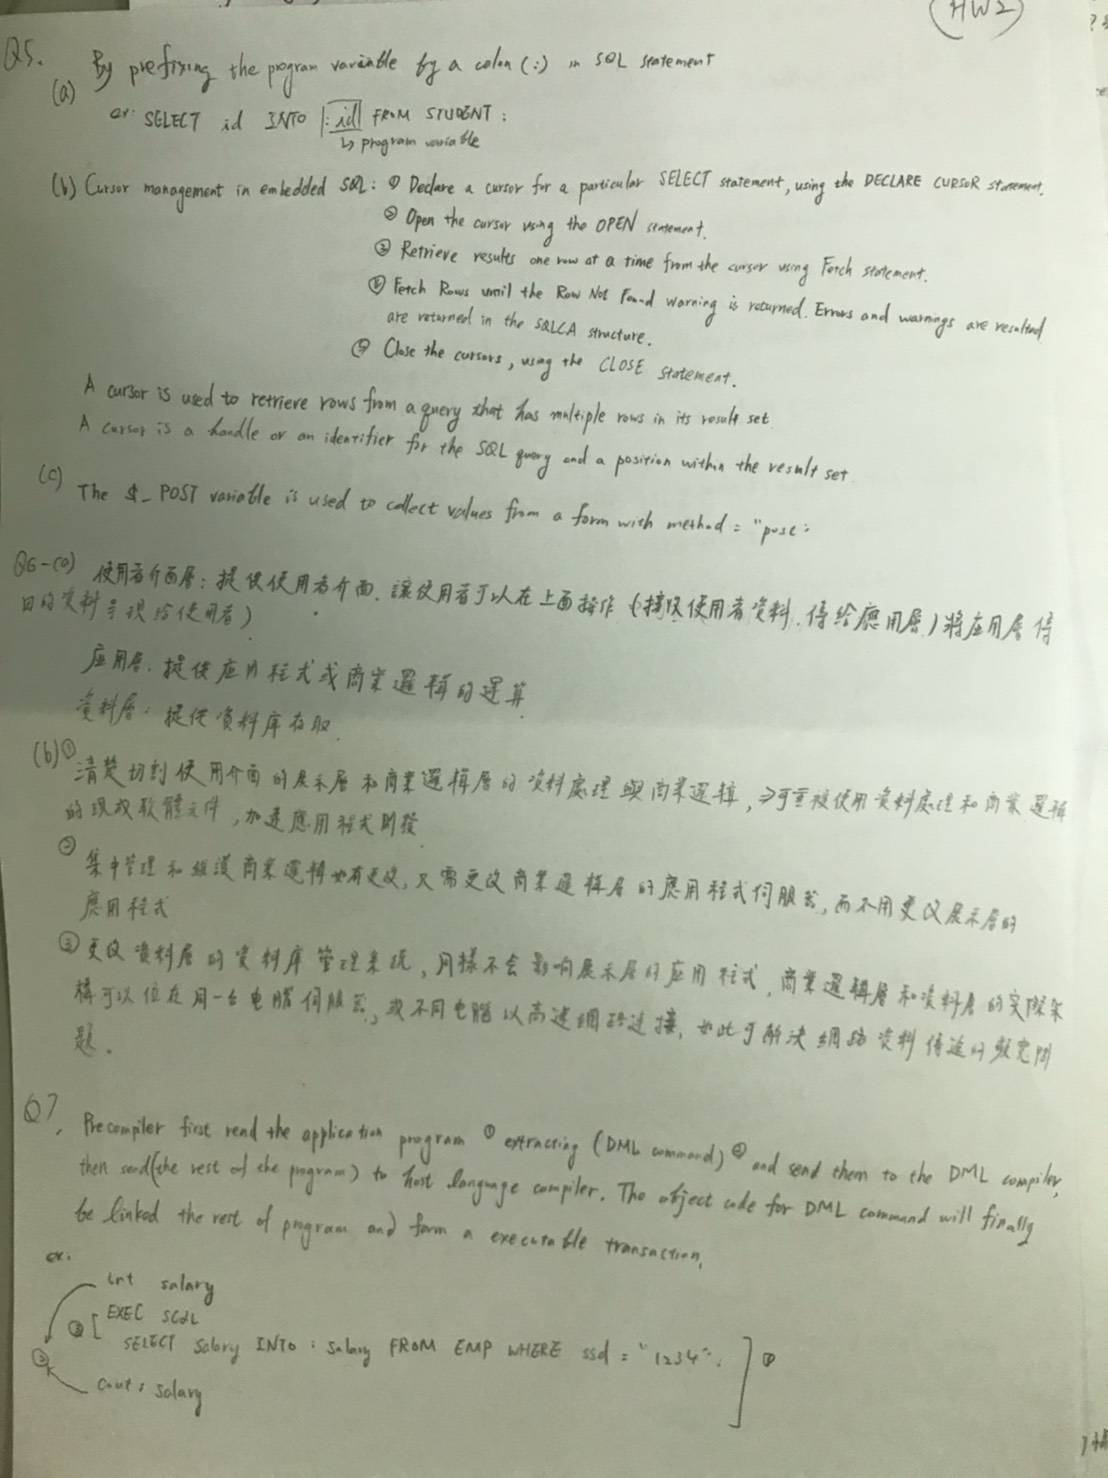 HW2
Q5.
(a) By prefixing the program variable by a colon (:) in SQL statement
ex: SELECT id INTO :id FROM STUDENT ;
↳ program variable
(b) Cursor management in embedded SQL: ① Declare a cursor for a particular SELECT statement, using the DECLARE CURSOR statement.
② Open the cursor using the OPEN statement.
③ Retrieve results one row at a time from the cursor using Fetch statement.
④ Fetch Rows until the Row Not Found warning is returned. Errors and warnings are resulted
are returned in the SQLCA structure.
⑤ Close the cursors, using the CLOSE statement.
A cursor is used to retrieve rows from a query that has multiple rows in its result set
A cursor is a handle or an identifier for the SQL query and a position within the result set
(c) The $_POST variable is used to collect values from a form with method = "post"
Q6-(a) 使用者介面層: 提供使用者介面, 讓使用者可以在上面操作 (接收使用者資料, 傳給應用層) 將应用层傳
回的資料呈現給使用者)
应用層: 提供应用程式或商業邏輯的運算
資料層: 提供資料庫存取.
(b) ① 清楚切割使用介面的展示層和商業邏輯層的資料處理與商業邏輯, ⇒可重複使用資料處理和商業邏輯
的現成軟體元件, 加速應用程式開發
② 集中管理和維護商業邏輯如有更改, 只需更改商業邏輯層的應用程式伺服器, 而不用更改展示層的
應用程式
③ 更改資料層的資料庫管理系統, 同樣不会影响展示层的应用程式, 商業邏輯層和資料層的实際架
構可以位在同一台电腦伺服器, 或不同电腦以高速網路連接, 如此可解決網路資料傳送的頻寬問
題.
Q7. Precompiler first read the application program ① extracting (DML command) ② and send them to the DML compiler,
then send(the rest of the program) to host language compiler. The object code for DML command will finally
be linked the rest of program and form a executable transaction.
ex.
int salary
② [ EXEC SQL
SELECT salary INTO : salary FROM EMP WHERE ssd = "1234". ] ①
③
cout : salary